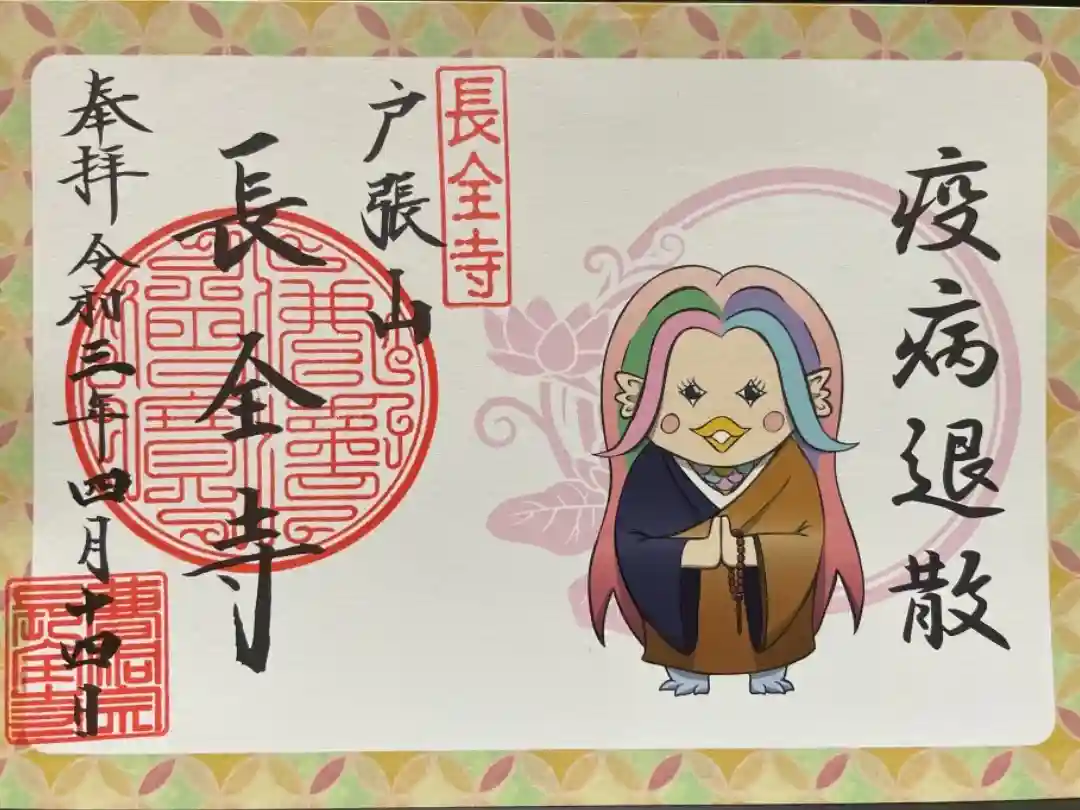 疫病退散
長全寺
戸張山
長全寺
奉拝
令和三年四月十四日